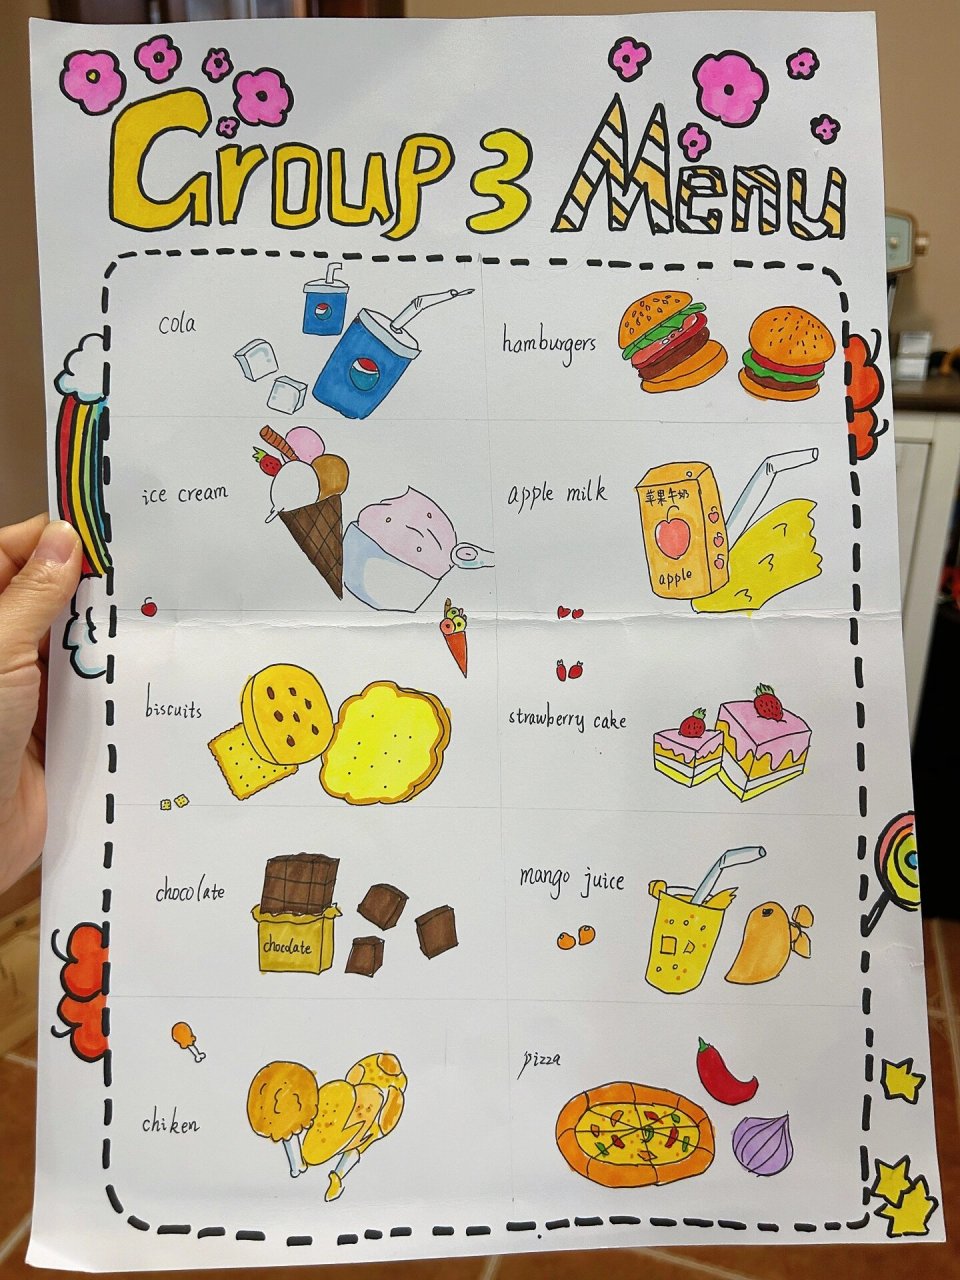 Group 3 Menu
cola
hamburgers
ice cream
apple milk
苹果牛奶
apple
biscuits
strawberry cake
chocolate
chocolate
mango juice
chiken
pizza